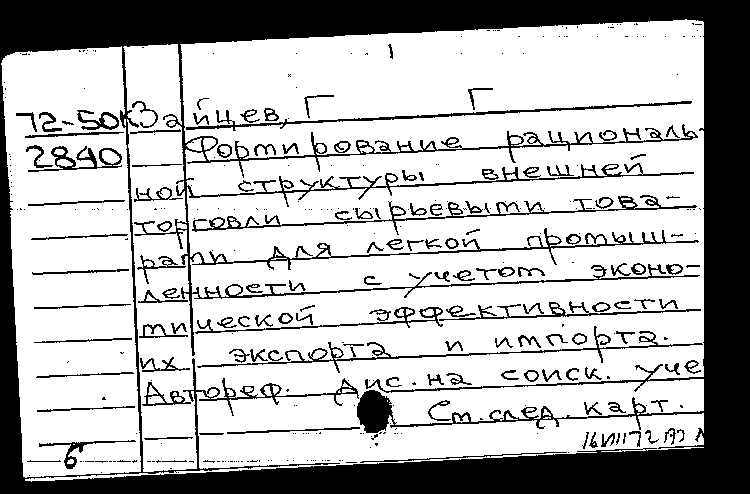 72-50к Зайцев, Г Г
2840 Формирование рациональ-
ной структуры внешней
торговли сырьевыми това-
рами для легкой промыш-
ленности с учетом эконо-
мической эффективности
их экспорта и импорта.
Автореф. Дис. на соиск. уче
См. след. карт.
б